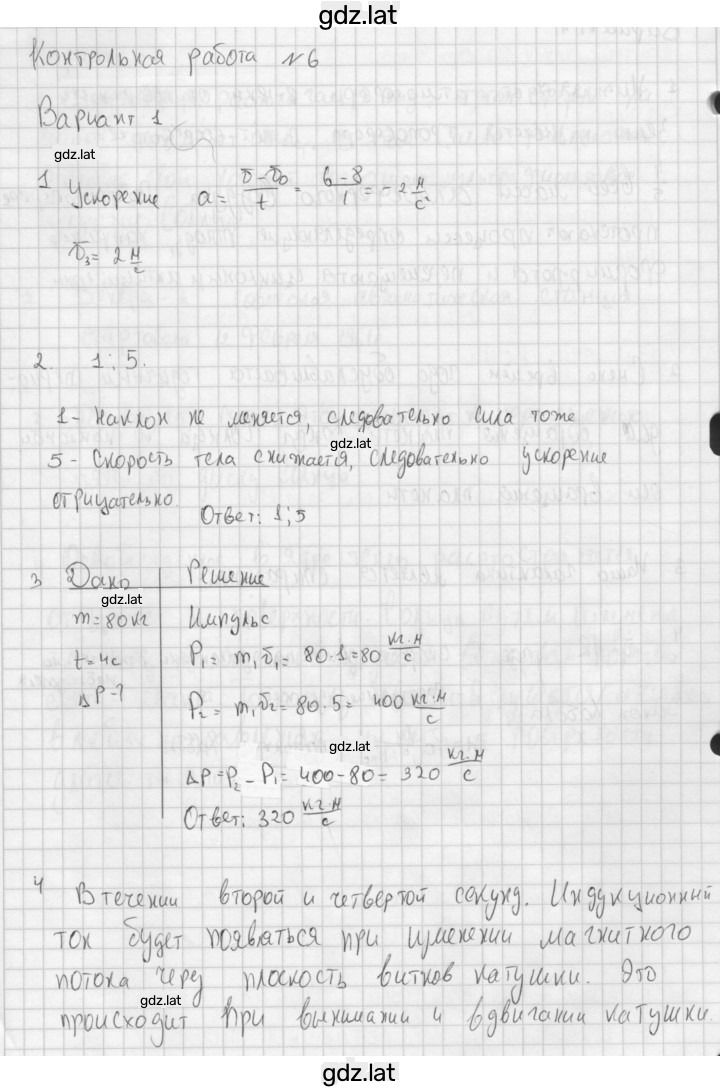 gdz.lat
Контрольная работа №6
Вариант 1
gdz.lat
1 Ускорение a = (v - v₀)/t = (6 - 8)/1 = -2 м/с²
v₃ = 2 м/с
2. 1; 5.
1 - Наклон не меняется, следовательно сила тоже
gdz.lat
5 - Скорость тела снижается, следовательно ускорение
отрицательно.
Ответ: 1; 5
3 Дано Решение
gdz.lat
m = 80 кг Импульс
t = 4 с P₁ = m₁v₁ = 80·1 = 80 кг·м/с
ΔP - ? P₂ = m₁v₂ = 80·5 = 400 кг·м/с
gdz.lat
ΔP = P₂ - P₁ = 400 - 80 = 320 кг·м/с
Ответ: 320 кг·м/с
4 В течении второй и четвертой секунд. Индукционный
ток будет появляться при изменении магнитного
потока через плоскость витков катушки. Это
gdz.lat
происходит при вынимании и вдвигании катушки.
gdz.lat